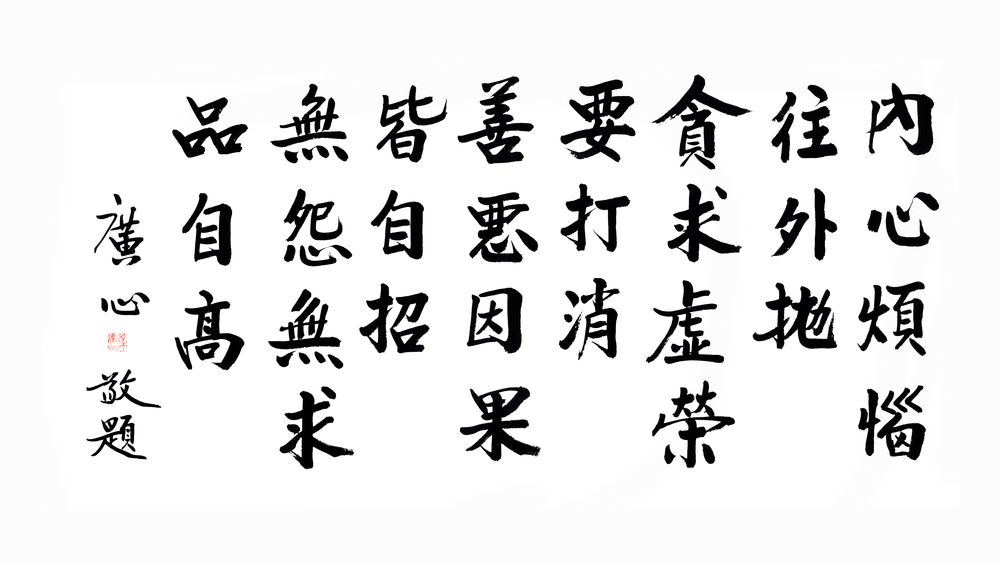 內心煩惱
往外拋
貪求虛榮
要打消
善惡因果
皆自招
無怨無求
品自高
廣心
敬題